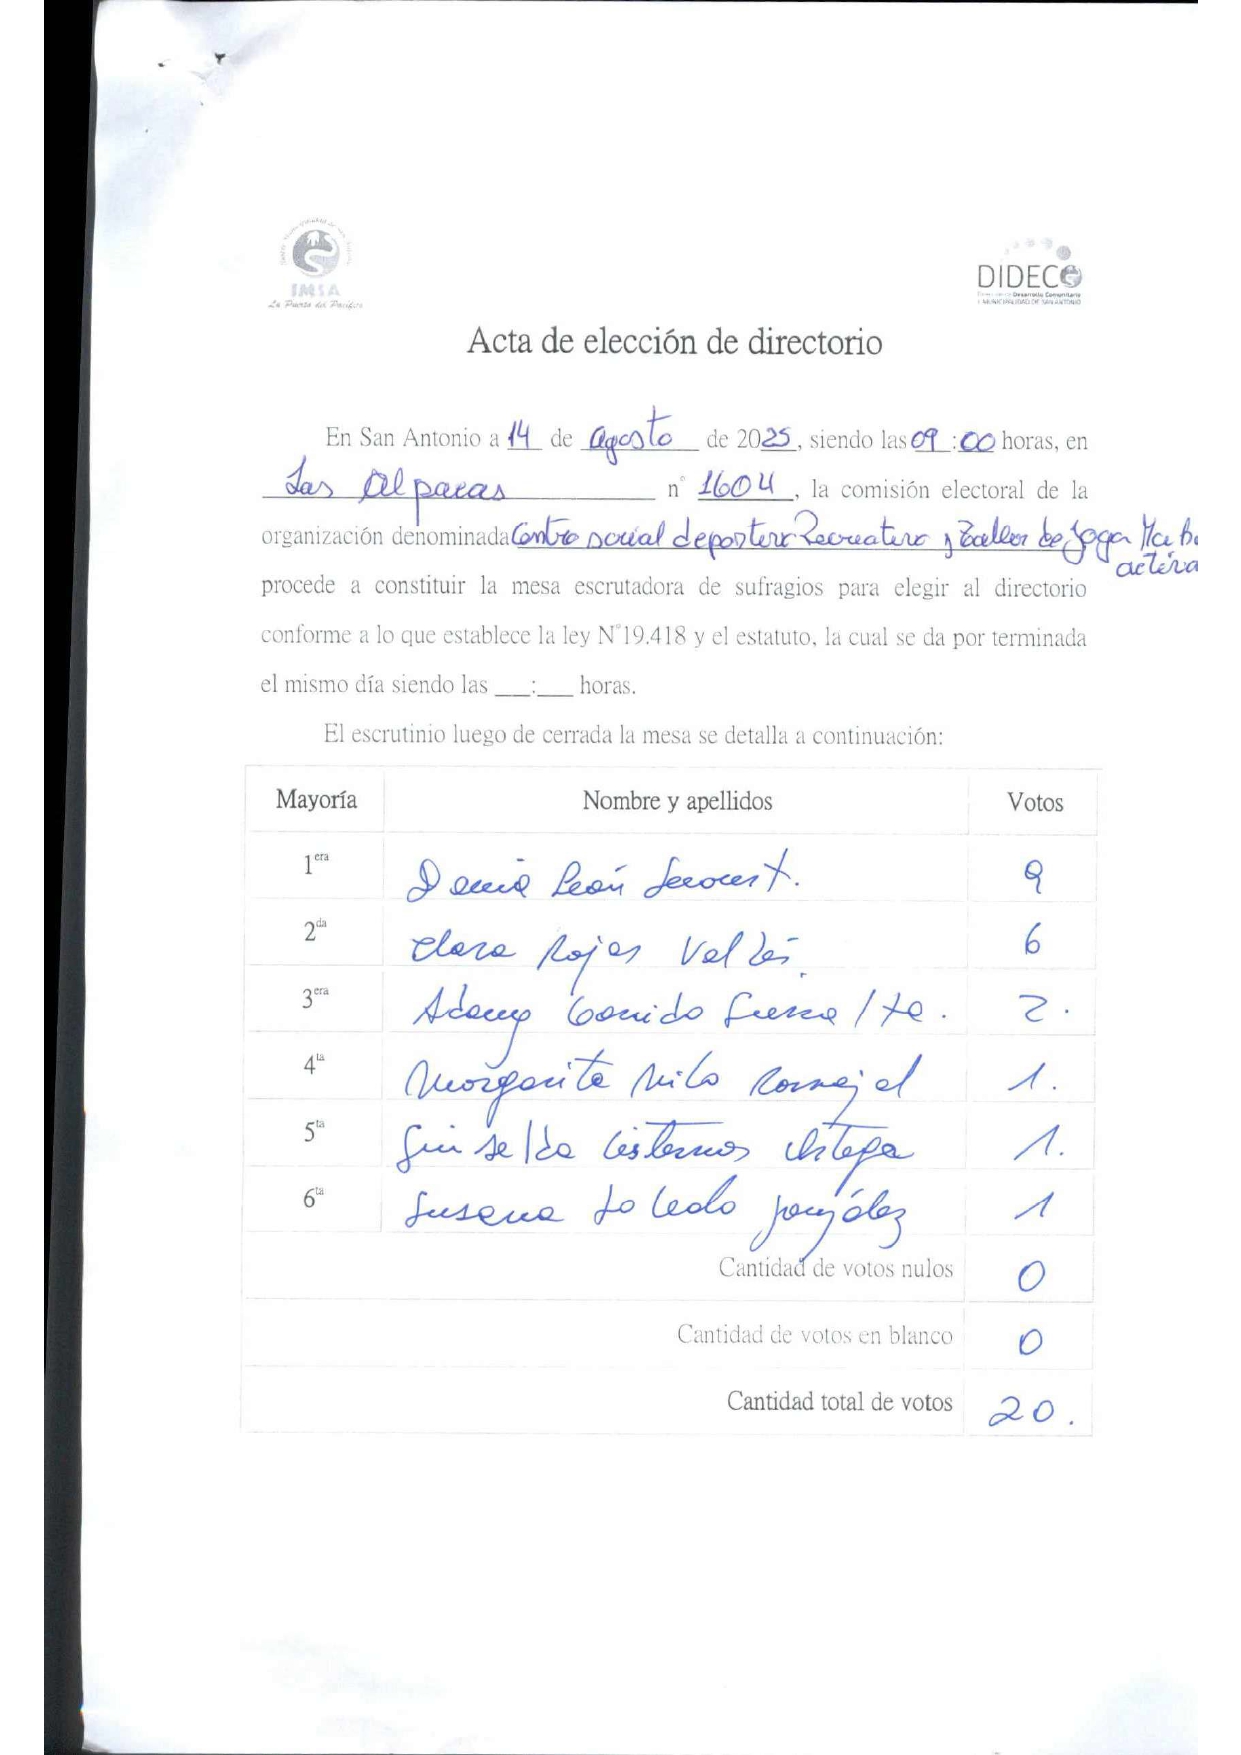 IMSA
La Puerta del Pacífico
DIDECO
Desarrollo Comunitario
I. MUNICIPALIDAD DE SAN ANTONIO
Acta de elección de directorio
En San Antonio a 14 de Agosto de 2025, siendo las 09:00 horas, en
Las Alpacas n° 1604, la comisión electoral de la
organización denominada Centro social deportivo Recreativo y Taller de Yoga
activa
procede a constituir la mesa escrutadora de sufragios para elegir al directorio
conforme a lo que establece la ley N°19.418 y el estatuto, la cual se da por terminada
el mismo día siendo las ___:___ horas.
El escrutinio luego de cerrada la mesa se detalla a continuación:
Mayoría Nombre y apellidos Votos
1era León 9
2da Clara Rojas Valdés. 6
3era Garrido 2.
4ta Margarita Milo 1.
5ta Cisternas Ortega 1.
6ta Susana Toledo González 1
Cantidad de votos nulos 0
Cantidad de votos en blanco 0
Cantidad total de votos 20.